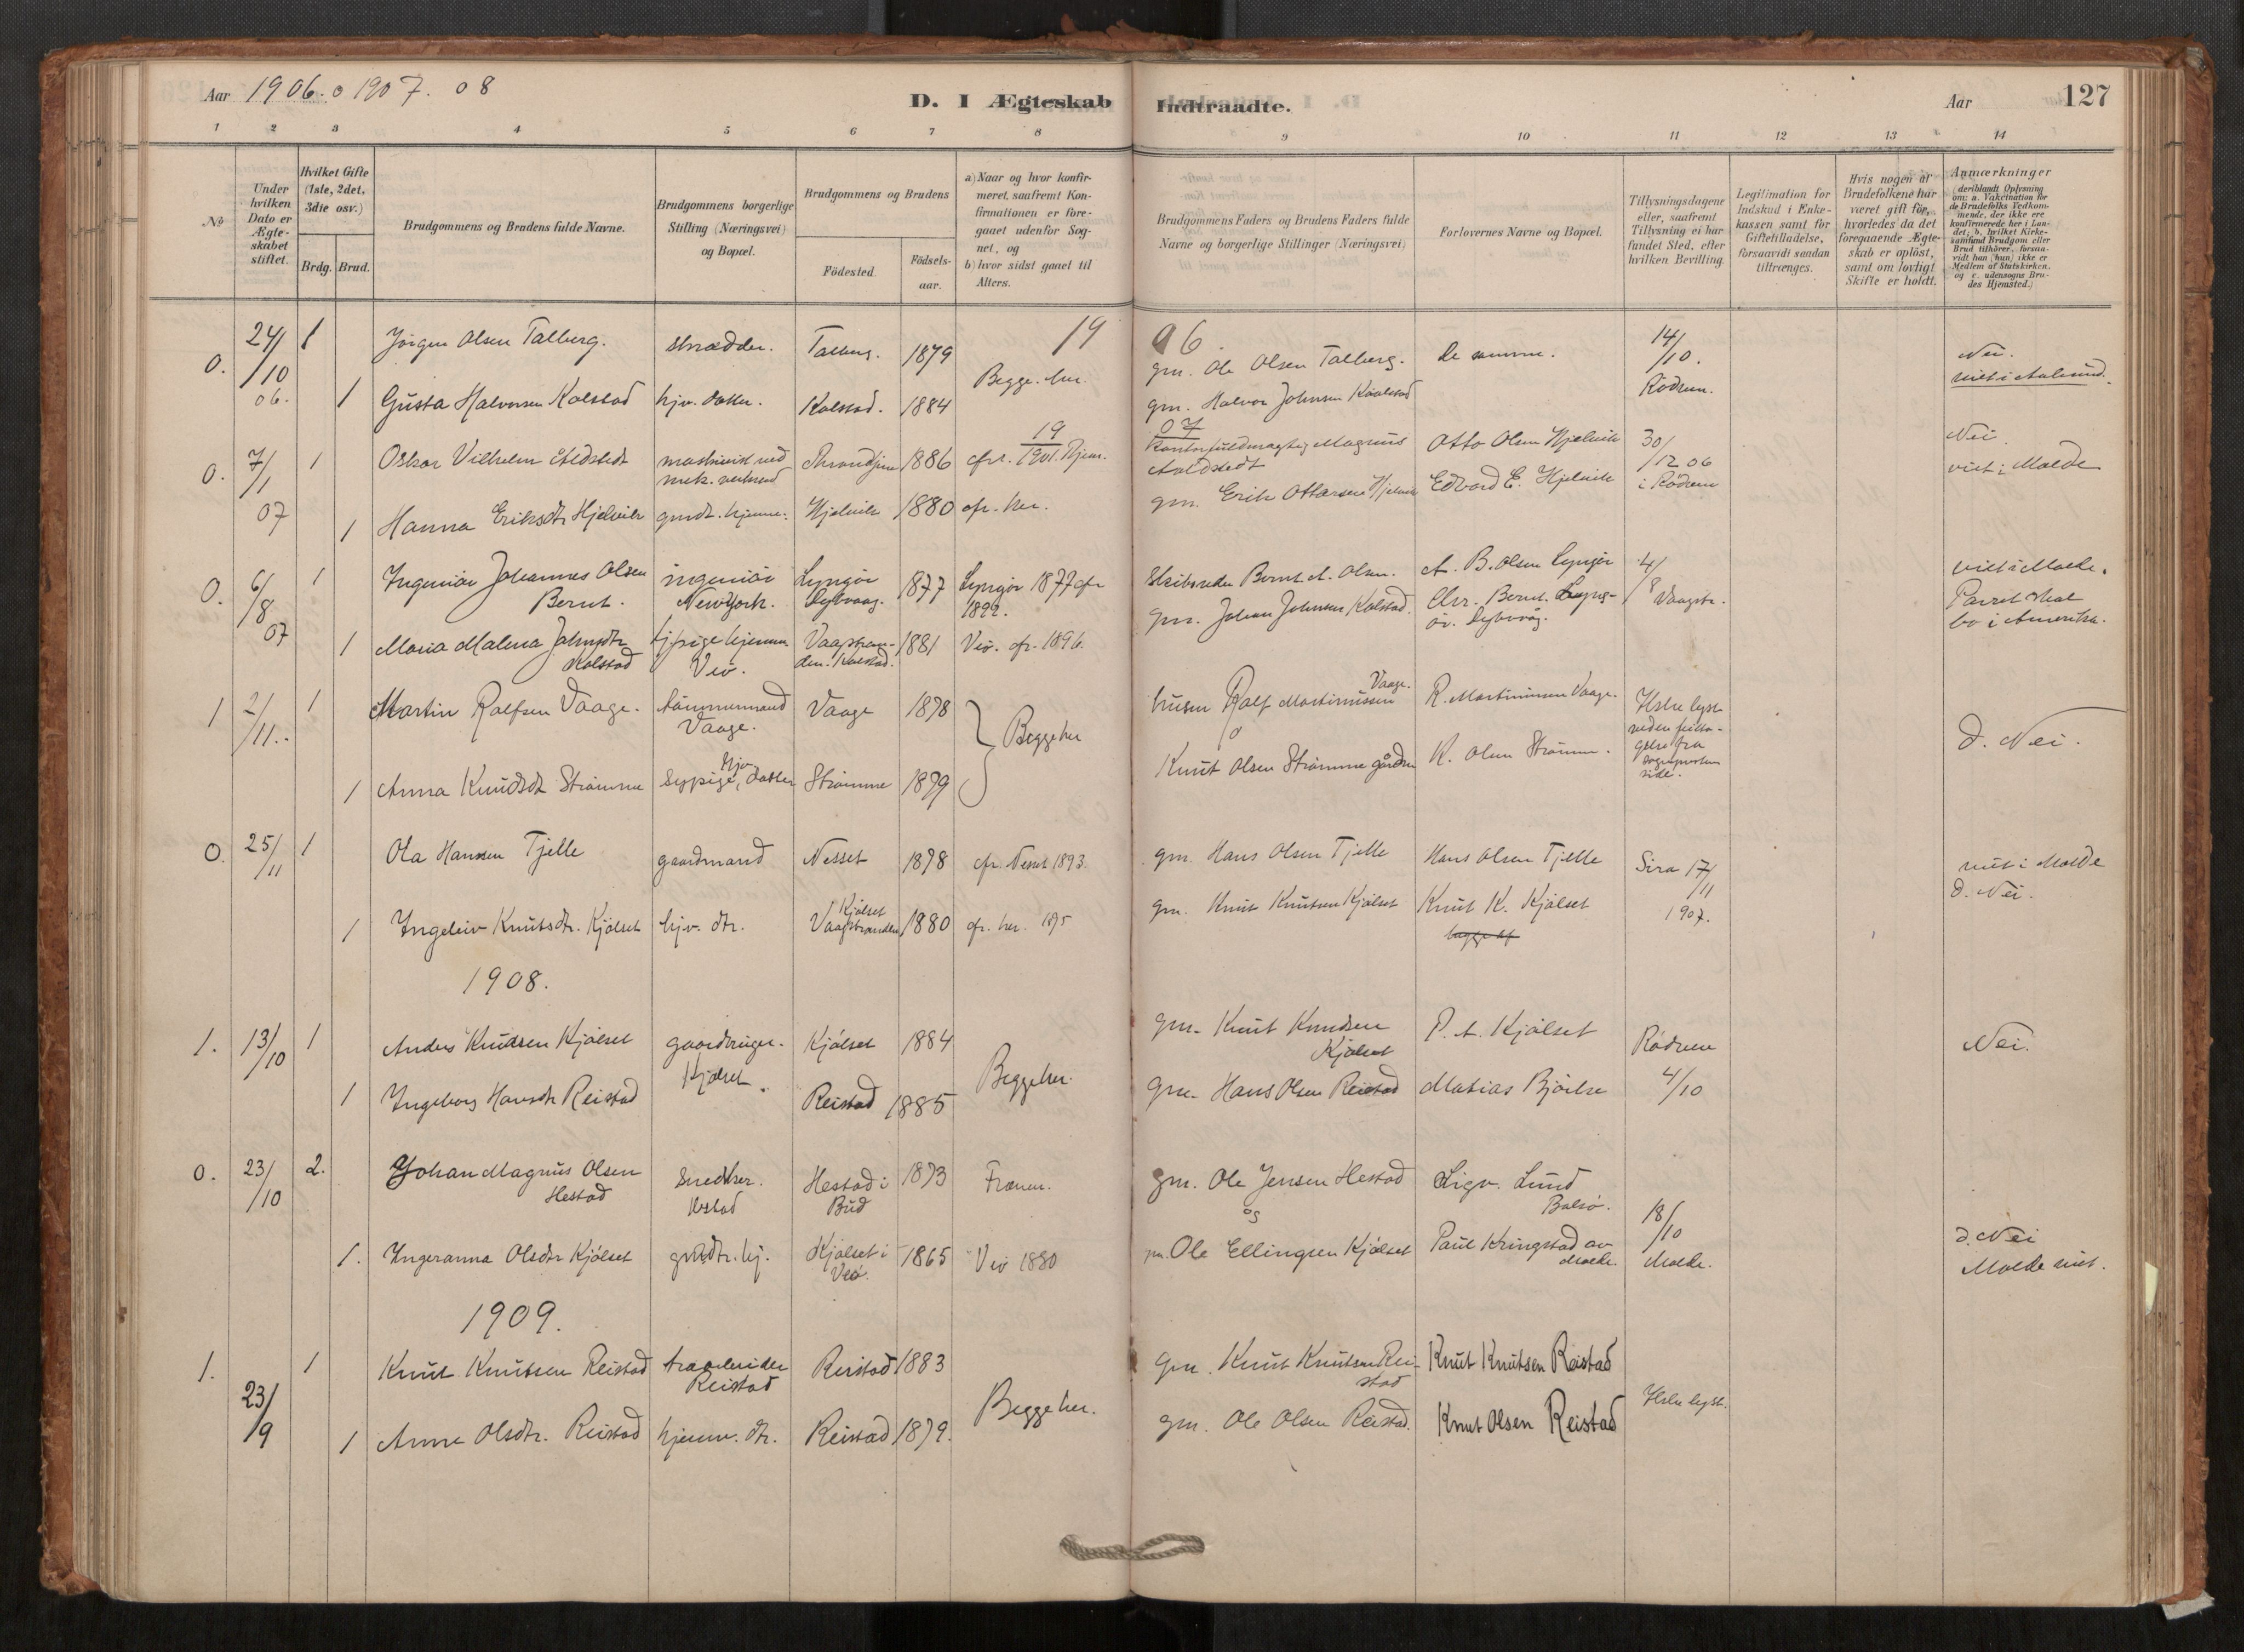 Aar 1906. o 1907. 08
D. I Ægteskab Indtraadte.
Aar 127
1 2 3 4 5 6 7 8 9 10 11 12 13 14
No
Under hvilken Dato er Ægteskabet stiftet.
Hvilket Gifte (1ste, 2det, 3die osv.)
Brdg. Brud.
Brudgommens og Brudens fulde Navne.
Brudgommens borgerlige Stilling (Næringsvei) og Bopæl.
Brudgommens og Brudens
Fødested. Fødselsaar.
a) Naar og hvor konfirmeret, saafremt Konfirmationen er foregaaet udenfor Sognet, og
b) hvor sidst gaaet til Alters.
Brudgommens Faders og Brudens Faders fulde Navne og borgerlige Stillinger (Næringsvei)
Forlovernes Navne og Bopæl.
Tillysningsdagene eller, saafremt Tillysning ei har fundet Sted, efter hvilken Bevilling.
Legitimation for Indskud i Enkekassen samt for Giftetilladelse, forsaavidt saadan tiltrænges.
Hvis nogen af Brudefolkene har været gift før, hvorledes da det foregaaende Ægteskab er opløst, samt om lovligt Skifte er holdt.
Anmærkninger
(deriblandt Oplysning om: a. Vakcination for de Brudefolks Vedkommende, der ikke ere konfirmerede her i Landet; b. hvilket Kirkesamfund Brudgom eller Brud tilhører, forsaavidt han (hun) ikke er Medlem af Statskirken, og c. udensogns Brudes Hjemsted.)
19 06.
0. 24/10 06. 1 Jörgen Olsen Talberg. skrædder. Talberg. 1879 Begge her. gm. Ole Olsen Talberg. de samme. 14/10. Rödven. Nei.
1 Gusta Halvorsen Kolstad hjv. datter. Kolstad. 1884 gm. Halvor Johnsen Kolstad viet i Aalesund.
19 07
0. 7/1 07 1 Oskar Vilhelm maskinist ved mek. verksted Throndhjem 1886 cfr. 1901. Kontorfuldmægtig Magnus Otto Olsen Hjelvik 30/12 06 i Rödven Nei.
viet i Molde
1 Hanna Eriksdtr Hjelvik gmdt. hjemme. Hjelvik 1880 cfr. her. gm. Erik Ottarsen Hjelvik Edvard E. Hjelvik
0. 6/8 07 1 Ingeniör Johannes Olsen Bernt. ingeniör NewYork. Lyngör Dybvaag. 1877 Lyngör 1877 cfr 1892. Skibsreder Bernt A. Olsen. A. B. Olsen Lyngör 4/8 Vaagstr. viet i Molde.
1 Maria Malena Johnsdtr Kolstad Veö. Vaagstranden. Kolstad. 1881 Veö. cfr. 1896. gm. Johan Johnsen Kolstad. Chr. Bernt. Lyngör. Dybvåg. Parret skal bo i Amerika.
1 2/11. 1 Martin Rolfsen Vaage. tömmermand Vaage. Vaage 1878 Begge her Rolf Martinussen Vaage. R. Martinussen Vaage. d. Nei.
1 Anna Knudsdt Strömme Sypige, hjv datter Strömme 1879 Knut Olsen Strömme gårdm K. Olsen Strömme.
0. 25/11 1 Ola Hansen Tjelle gaardmand Nesset 1878 cfr. Nesset 1893. gm. Hans Olsen Tjelle Hans Olsen Tjelle Sira 17/11 1907. viet i Molde
d. Nei.
1 Ingeleiv Knutsdtr. Kjölset hjv. dtr. Kjölset Vaagstranden 1880 cfr. her. 1895 gm. Knut Knutsen Kjölset Knut K. Kjölset
begge af
1908.
1. 13/10 1 Anders Knudsen Kjölset gaardbruger. Kjölset. Kjölset 1884 Begge her. gm. Knut Knudsen Kjölset P. A. Kjölset Rödven 4/10 Nei.
1 Ingeborg Hansdtr Reistad Reistad 1885 gm. Hans Olsen Reistad Matias Björke
0. 23/10 2. Johan Magnus Olsen Hestad Snedker. Hestad Hestad i Bud 1873 Frænen. gm. Ole Jensen Hestad Sigv. Lund Bolsö. 18/10 Molde.
og
1. Ingeranna Olsdtr Kjölset gmdtr. hj. Kjölset i Veö. 1865 Veö 1880 gm. Ole Ellingsen Kjölset Paul Kringstad av Molde. d. Nei
Molde viet.
1909.
1. 23/9 1 Knut Knutsen Reistad Reistad Reistad 1883 Begge her. gm. Knut Knutsen Reistad Knut Knutsen Reistad
1 Anne Olsdtr. Reistad hjemv. dtr. Reistad 1879. gm. Ole Olsen Reistad. Knut Olsen Reistad